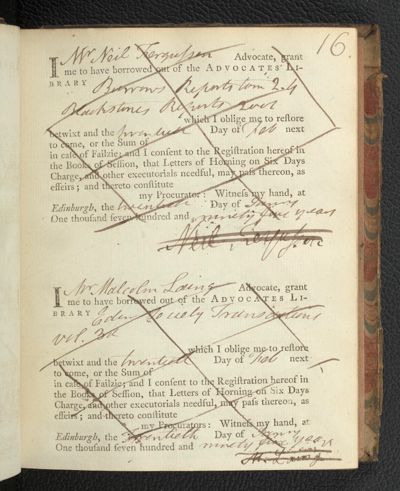 16.
I Mr Neil Fergusson Advocate, grant
me to have borrowed out of the ADVOCATES LI-
BRARY Burrows Reports tom 2.4
Blackstones Reports
which I oblige me to reſtore
betwixt and the twentieth Day of Feb next
to come, or the Sum of
in caſe of Failzie; and I conſent to the Regiſtration hereof in
the Books of Seſſion, that Letters of Horning on Six Days
Charge, and other executorials needful, may paſs thereon, as
effeirs; and thereto conſtitute
my Procurators: Witneſs my hand, at
Edinburgh, the twentieth Day of Janry
One thouſand ſeven hundred and ninety five years
Neil Fergusson
I Mr Malcolm Laing Advocate, grant
me to have borrowed out of the ADVOCATES LI-
BRARY Edin Society Transactions
vol. 3d
which I oblige me to reſtore
betwixt and the twentieth Day of Feb next
to come, or the Sum of
in caſe of Failzie; and I conſent to the Regiſtration hereof in
the Books of Seſſion, that Letters of Horning on Six Days
Charge, and other executorials needful, may paſs thereon, as
effeirs; and thereto conſtitute
my Procurators: Witneſs my hand, at
Edinburgh, the twentieth Day of Janry
One thouſand ſeven hundred and ninety five years
M. Laing